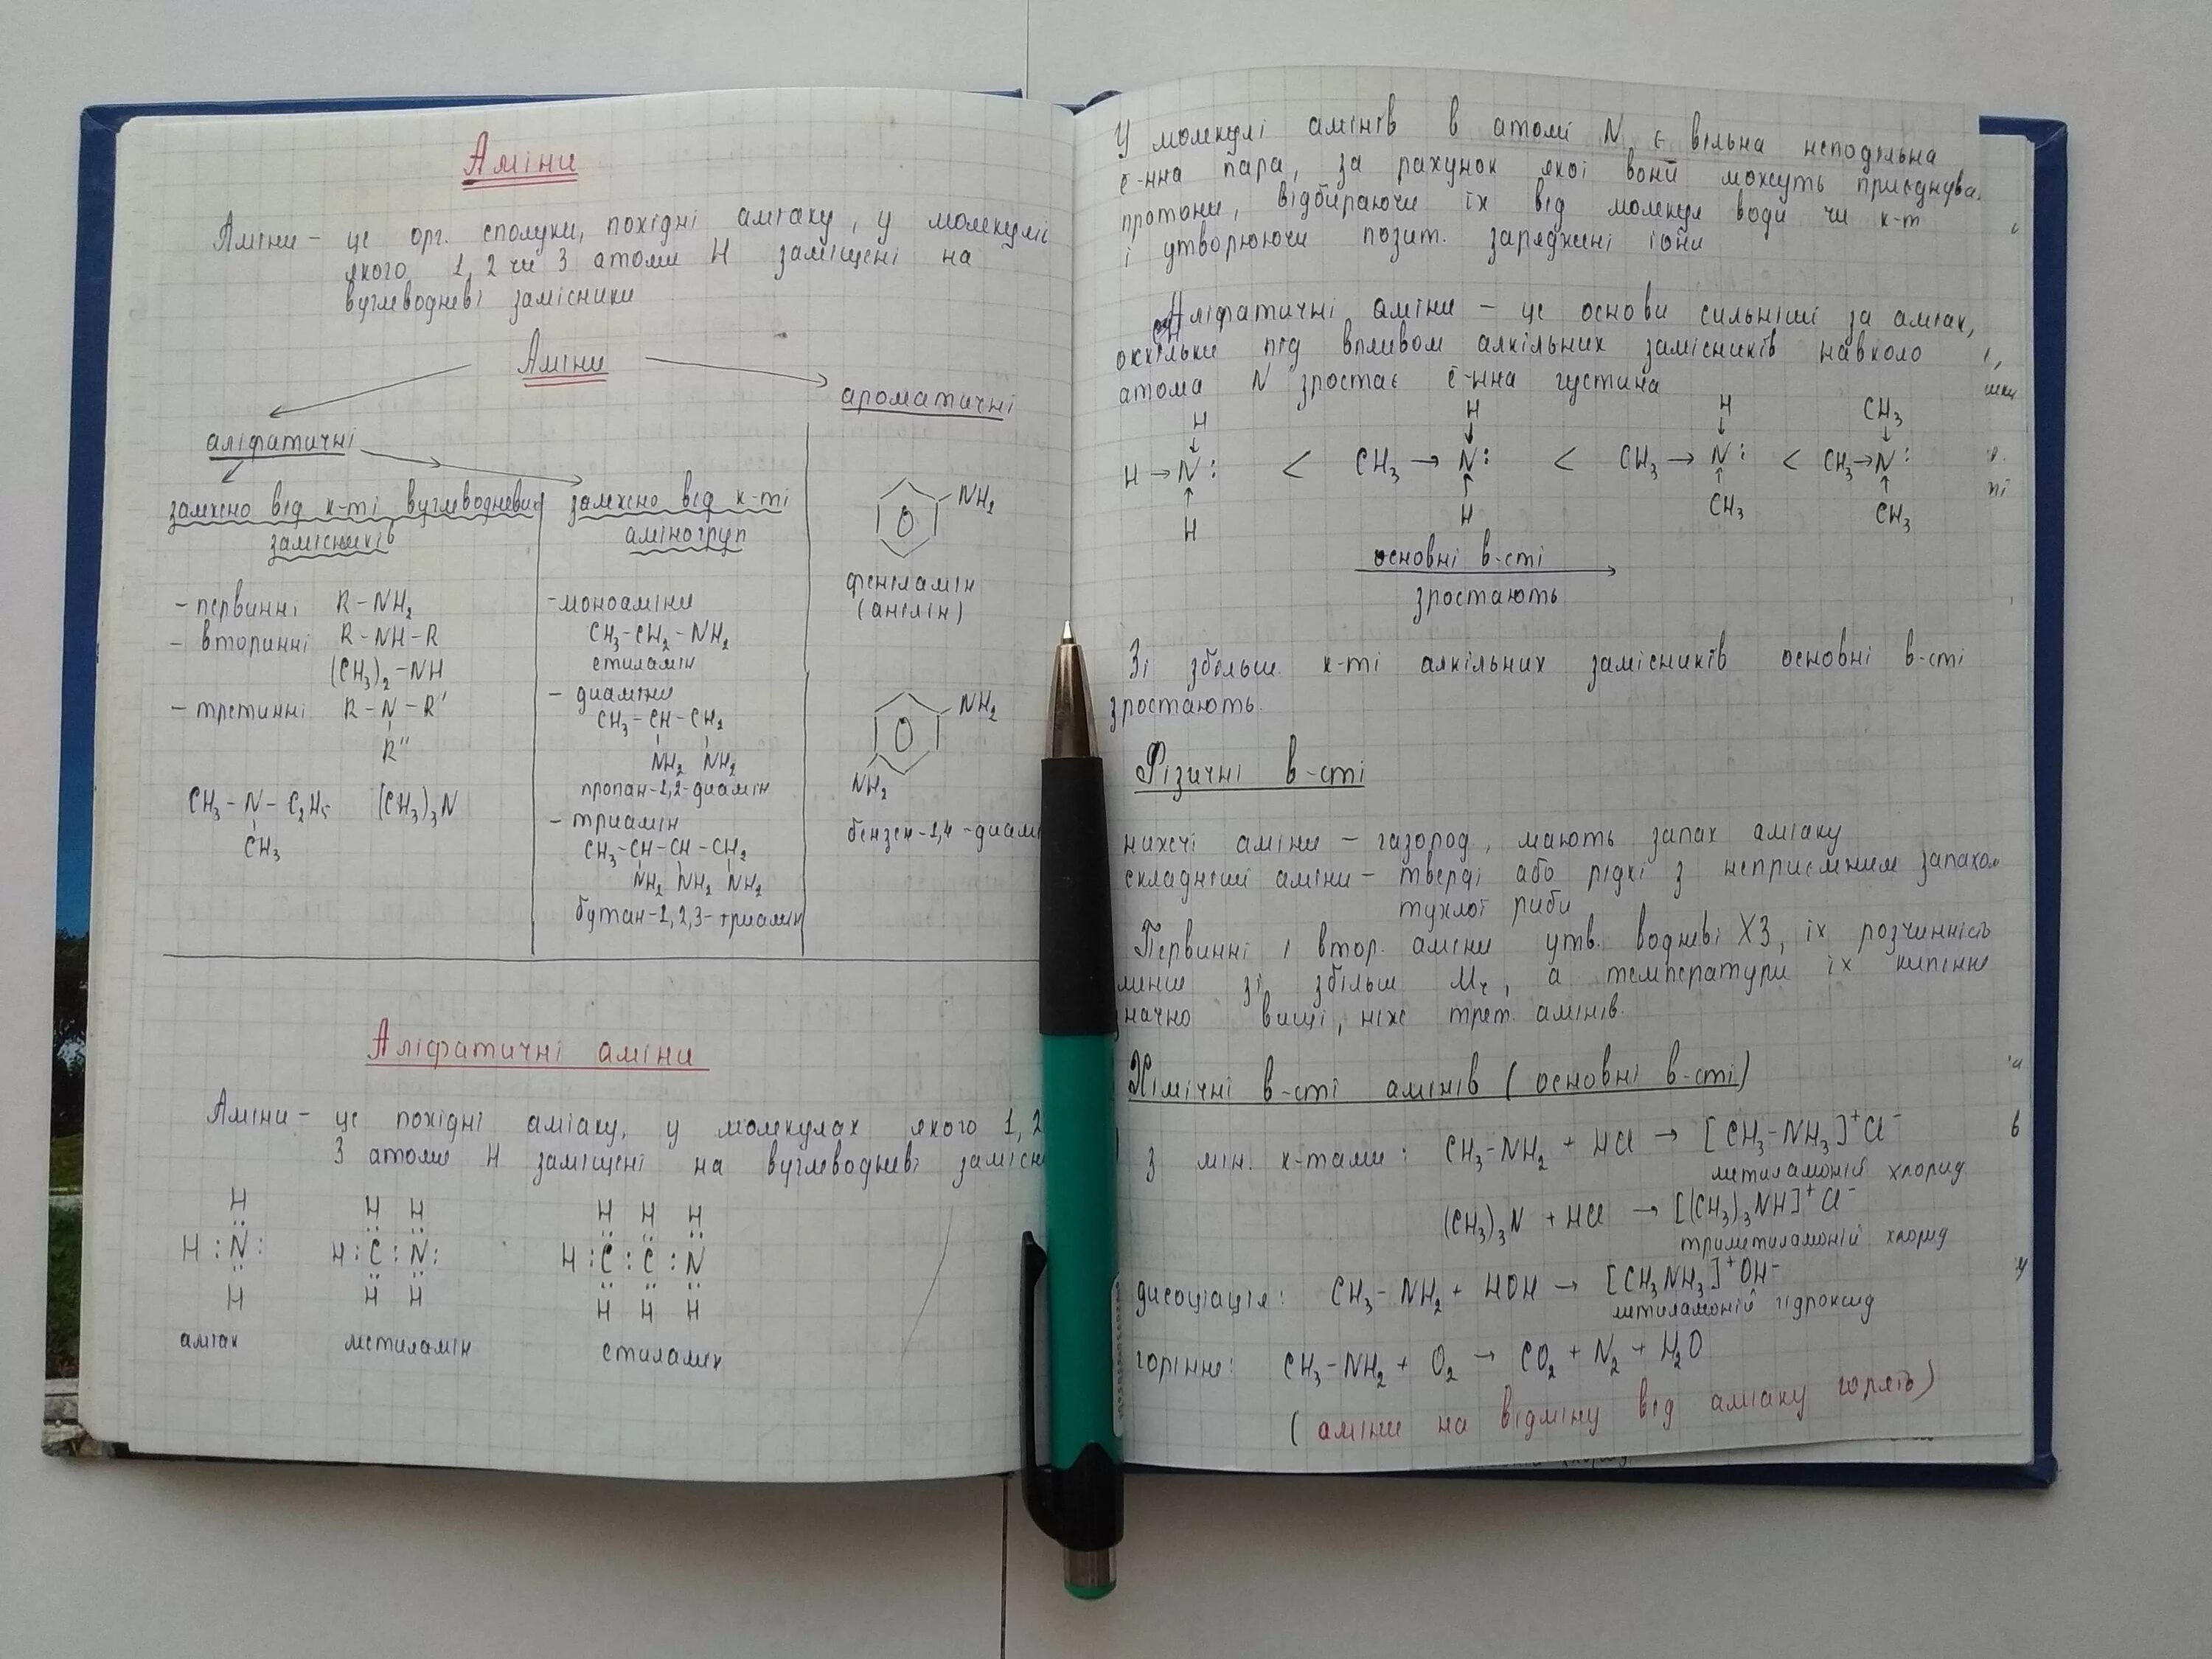 Аміни
Аміни - це орг. сполуки, похідні аміаку, у молекулі
якого 1, 2 чи 3 атоми H заміщені на
вуглеводневі замісники
Аміни
аліфатичні
ароматичні
залежно від к-ті вуглеводневих
замісників
- первинні R-NH₂
- вторинні R-NH-R
(CH₃)₂-NH
- третинні R-N-R'
R''
CH₃-N-C₂H₅ (CH₃)₃N
CH₃
залежно від к-ті
аміногруп
- моноаміни
CH₃-CH₂-NH₂
етиламін
- диаміни
CH₃-CH-CH₂
NH₂ NH₂
пропан-1,2-диамін
- триамін
CH₃-CH-CH-CH₂
NH₂ NH₂ NH₂
бутан-1,2,3-триамін
NH₂
феніламін
(анілін)
NH₂
NH₂
бензен-1,4-диамі
Аліфатичні аміни
Аміни - це похідні аміаку, у молекулах якого 1, 2
3 атоми H заміщені на вуглеводневі
H
H:N:
H
аміак
H H
H:C:N:
H H
метиламін
H H H
H:C:C:N
H H H
етиламін
У молекулі амінів в атомі N є вільна неподільна
ē-нна пара, за рахунок якої вони можуть приєднува
протони, відбираючи їх від молекул води чи к-т
і утворюючи позит. заряджені іони
Аліфатичні аміни - це основи сильніші за аміак,
оскільки під впливом алкільних замісників навколо
атома N зростає ē-нна густина
H H H CH₃
H→N: < CH₃→N: < CH₃→N: < CH₃→N:
H H CH₃ CH₃
основні в-сті
зростають
Зі збільш. к-ті алкільних замісників основні в-сті
зростають.
Фізичні в-сті
нижчі аміни - газопод, мають запах аміаку
складніші аміни - тверді або рідкі з неприємним запахом
тухлої риби
Первинні і втор. аміни утв. водневі ХЗ, їх розчинність
менш зі збільш Mr, а температури їх кипіння
значно вищі, ніж трет. амінів.
Хімічні в-сті амінів (основні в-сті)
з мін. к-тами: CH₃-NH₂ + HCl → [CH₃-NH₃]⁺Cl⁻
метиламоній хлорид
(CH₃)₃N + HCl → [(CH₃)₃NH]⁺Cl⁻
триметиламоній хлорид
дисоціація: CH₃-NH₂ + HOH → [CH₃NH₃]⁺OH⁻
метиламоній гідроксид
горіння: CH₃-NH₂ + O₂ → CO₂ + N₂ + H₂O
(аміни на відміну від аміаку горять)